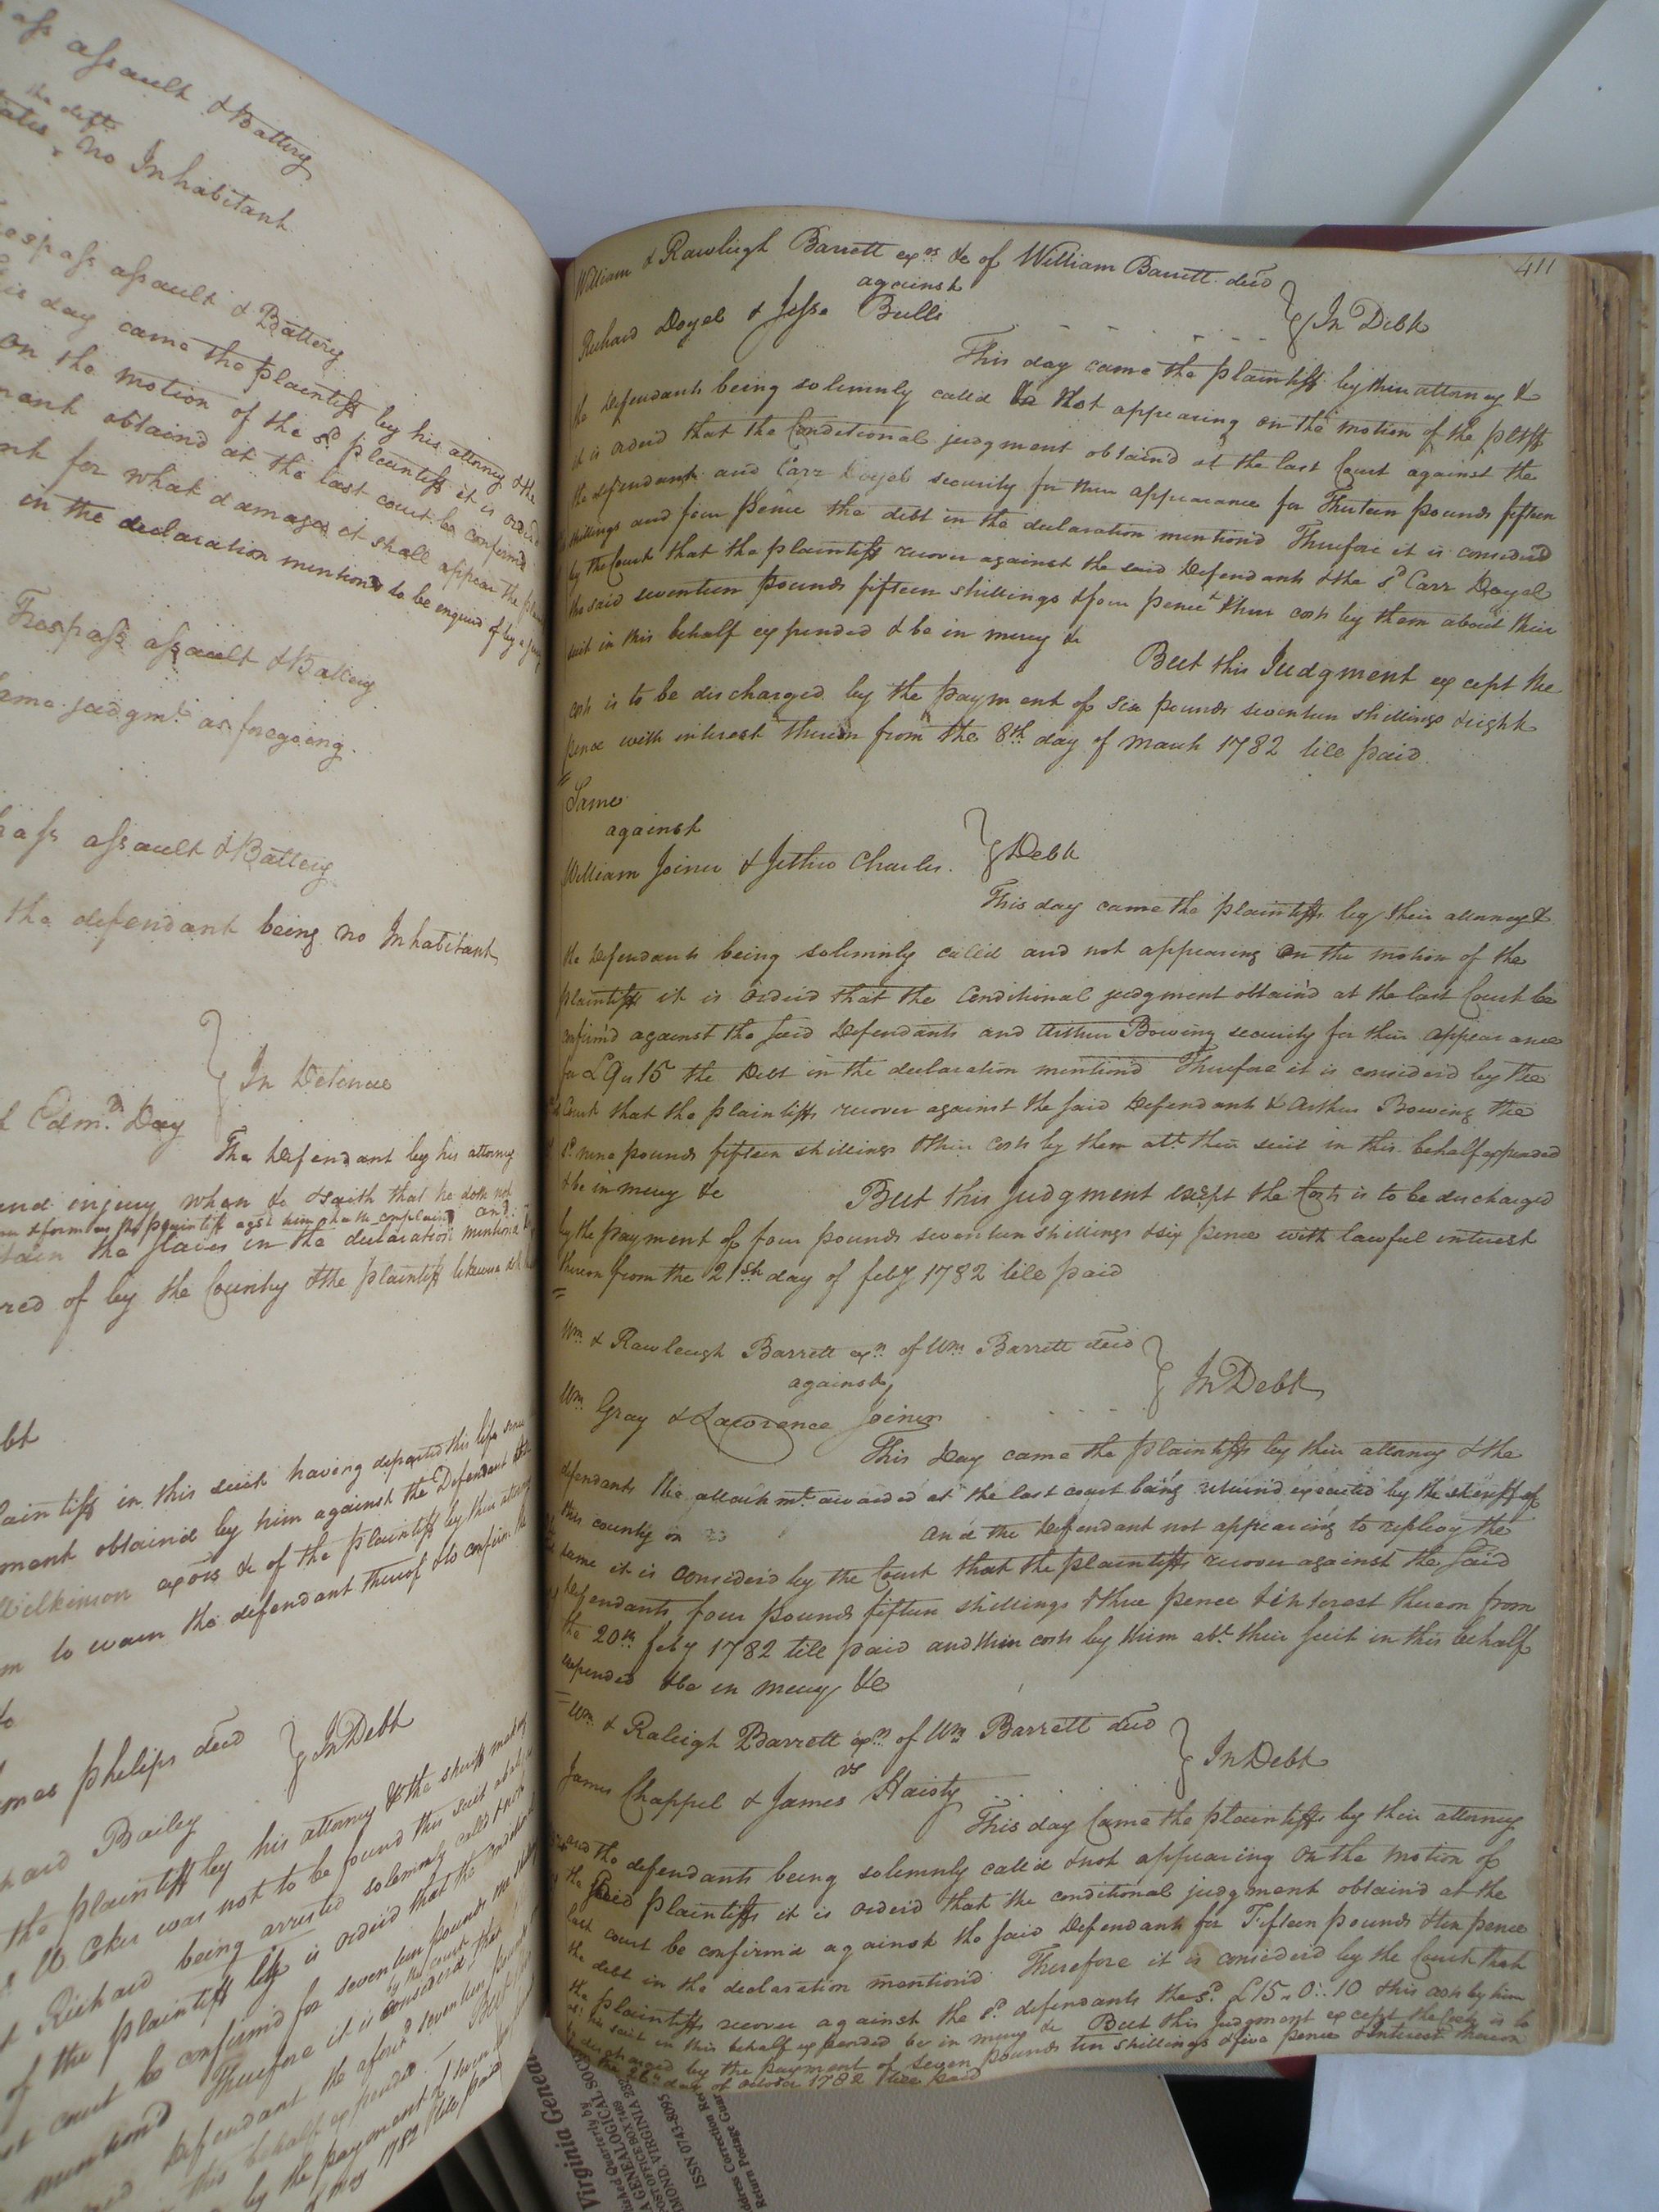 ass assault & Battery
the deft
no Inhabitant
Trespass assault & Battery
this day came the plaintiff by his attorney & the
on the motion of the sd plaintiff it is orderd
obtaind at the last court be confirmd
for what damages it shall appear the
in the declaration mentiond to be enquired of by a jury
Trespass assault & Battery
same judgmt as foregoing.
assault & Battery
the defendant being no Inhabitant
In Detenue
Edmd Day
The Defendant by his attorney
and injury when &c & saith that he doth not
the plaintiff agst him hath complaind and
the slaves in the declaration mentiond
of by the Country & the plaintiff likewise
plaintiff in this suit having departed this life since
obtaind by him against the Defendant
Wilkinson exors &c of the plaintiff by their attorney
to warn the defendant thereof & to confirm the
James Philips decd
In Debt
Bailey
the plaintiff by his attorney & the sheriff
was not to be found this suit
Richard being arrested solemnly calld & not
of the plaintiff it is orderd that the
court be confirmd for seventeen pounds
by the court
mentiond Therefore it is considerd that
Defendant the aforsd seventeen pounds
this behalf expended But
by the payment of
1782 till paid
411
William & Rawleigh Barrett exrs &c of William Barrett decd
against
In Debt
Richard Doyel & Jesse Bulls
This day came the plaintiff by their attorney &
the Defendants being solemnly called & not appearing on the motion of the pltff
it is orderd that the Conditional judgment obtaind at the last Court against the
the defendants and Carr Doyel security for their appearance for Thirteen pounds fifteen
shillings and four pence the debt in the declaration mentiond Therefore it is considerd
by the Court that the plaintiff recover against the said Defendants & the sd Carr Doyel
the said seventeen pounds fifteen shillings & four pence & their costs by them about their
suit in this behalf expended & be in mercy &c
But this Judgment except the
costs is to be discharged by the payment of six pounds seventeen shillings & eight
pence with interest thereon from the 8th day of March 1782 till paid
Same
against
Debt
William Joiner & Jethro Charles.
This day came the plaintiffs by their attorney &
the Defendants being solemnly called and not appearing on the motion of the
plaintiffs it is orderd that the Conditional judgment obtaind at the last Court be
confirmd against the said Defendants and Arthur Bowing security for their appearance
for £9 " 15 the Debt in the declaration mentiond Therefore it is considerd by the
Court that the plaintiffs recover against the said Defendants & Arthur Bowing the
sd nine pounds fifteen shillings & their costs by them abt their suit in this behalf expended
& be in mercy &c But this Judgment except the Costs is to be discharged
by the payment of four pounds seventeen shillings & six pence with lawful interest
thereon from the 21st day of feby 1782 till paid
Wm & Rawleigh Barrett exrs of Wm Barrett decd
against
In Debt
Wm Gray & Lawrence Joiner
This Day came the plaintiffs by their attorney & the
defendants the attachmt awarded at the last court being returnd executed by the sheriff of
this county on and the Defendant not appearing to replevy the
same it is considerd by the Court that the plaintiffs recover against the said
Defendants four pounds fifteen shillings & three pence & interest thereon from
the 20th feby 1782 till paid and their costs by them abt their suit in this behalf
expended & be in mercy &c
Wm & Raleigh Barrett exrs of Wm Barrett decd
vs
In Debt
James Chappel & James Haisty
This day Came the plaintiffs by their attorney
and the defendants being solemnly calld & not appearing on the motion of
the said plaintiffs it is orderd that the conditional judgment obtaind at the
last court be confirmd against the said Defendants for Fifteen pounds & ten pence
the debt in the declaration mentiond Therefore it is considerd by the Court that
the plaintiffs recover against the sd defendants the sd £15 " 0 : 10 & this costs by him
abt his suit in this behalf expended be in mercy &c But this Judgment except the Costs is to
be discharged by the payment of seven pounds ten shillings & five pence & Interest thereon
from the day of October 1782 till paid
Virginia Genea
Quarterly by
GENEALOGICAL SOC
POST OFFICE BOX 7469
MOND, VIRGINIA 232
ISSN 0743-8095
Address Correction Re
Return Postage Guar